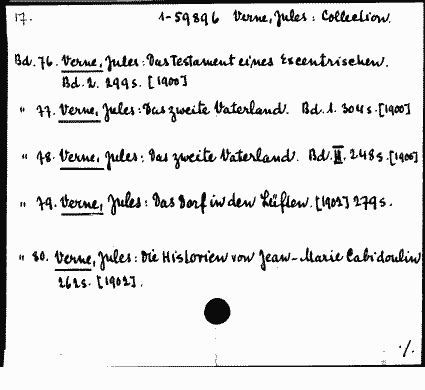 17. 1-59896 Verne, Jules: Collection.
Bd. 76. Verne, Jules: Das Testament eines Excentrischen.
Bd. 2. 299 S. [1900]
" 77. Verne, Jules: Das zweite Vaterland. Bd. 1. 304 S. [1900]
" 78. Verne, Jules: Das zweite Vaterland. Bd. II. 248 S. [1900]
" 79. Verne, Jules: Das Dorf in den Lüften. [1902] 279 S.
" 80. Verne, Jules: Die Historien von Jean-Marie Cabidoulin
262 S. [1902].
./.